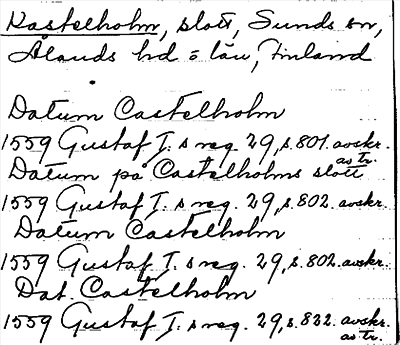 Kastelholm, slott, Sunds sn,
Ålands hd o län, Finland
Datum Castelholm
1559 Gustaf I. s reg. 29, s. 801. avskr.
av tr.
Datum på Castelholms slott
1559 Gustaf I. s reg. 29, s. 802. avskr.
Datum Castelholm
1559 Gustaf I. s reg. 29, s. 802. avskr.
Dat. Castelholm
1559 Gustaf I. s reg. 29, s. 832. avskr.
av tr.